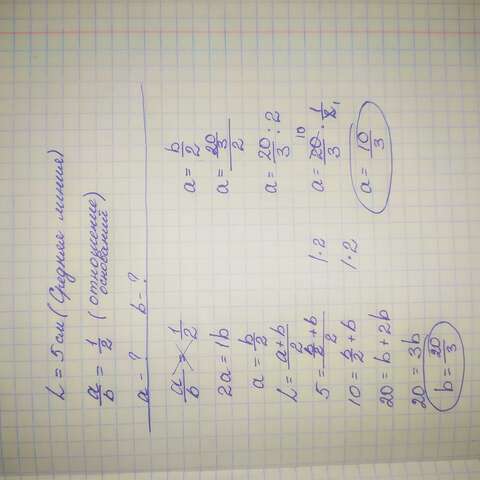 L = 5 см (Средняя линия)
a/b = 1/2 (отношение оснований)
a - ? b - ?
a/b = 1/2
2a = 1b
a = b/2
L = a+b/2
5 = b/2 + b/2 |·2
10 = b/2 + b |·2
20 = b + 2b
20 = 3b
b = 20/3
a = b/2
a = 20/3/2
a = 20/3 : 2
a = 20/3 · 1/2 10 1
a = 10/3